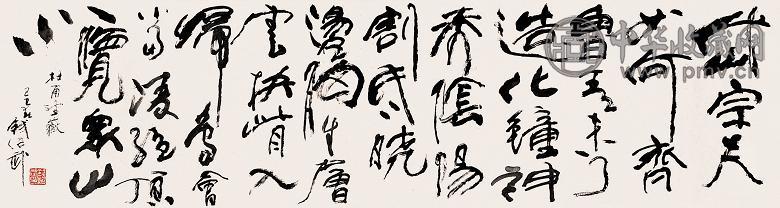 岱宗夫
如何齊
魯青未了
造化鐘神
秀陰陽
割昏曉
盪胸生層
雲決眥入
歸鳥會
當凌絕頂
一覽眾山
小
杜甫望嶽
錢紹武
中华收藏网
www.pmv.cn